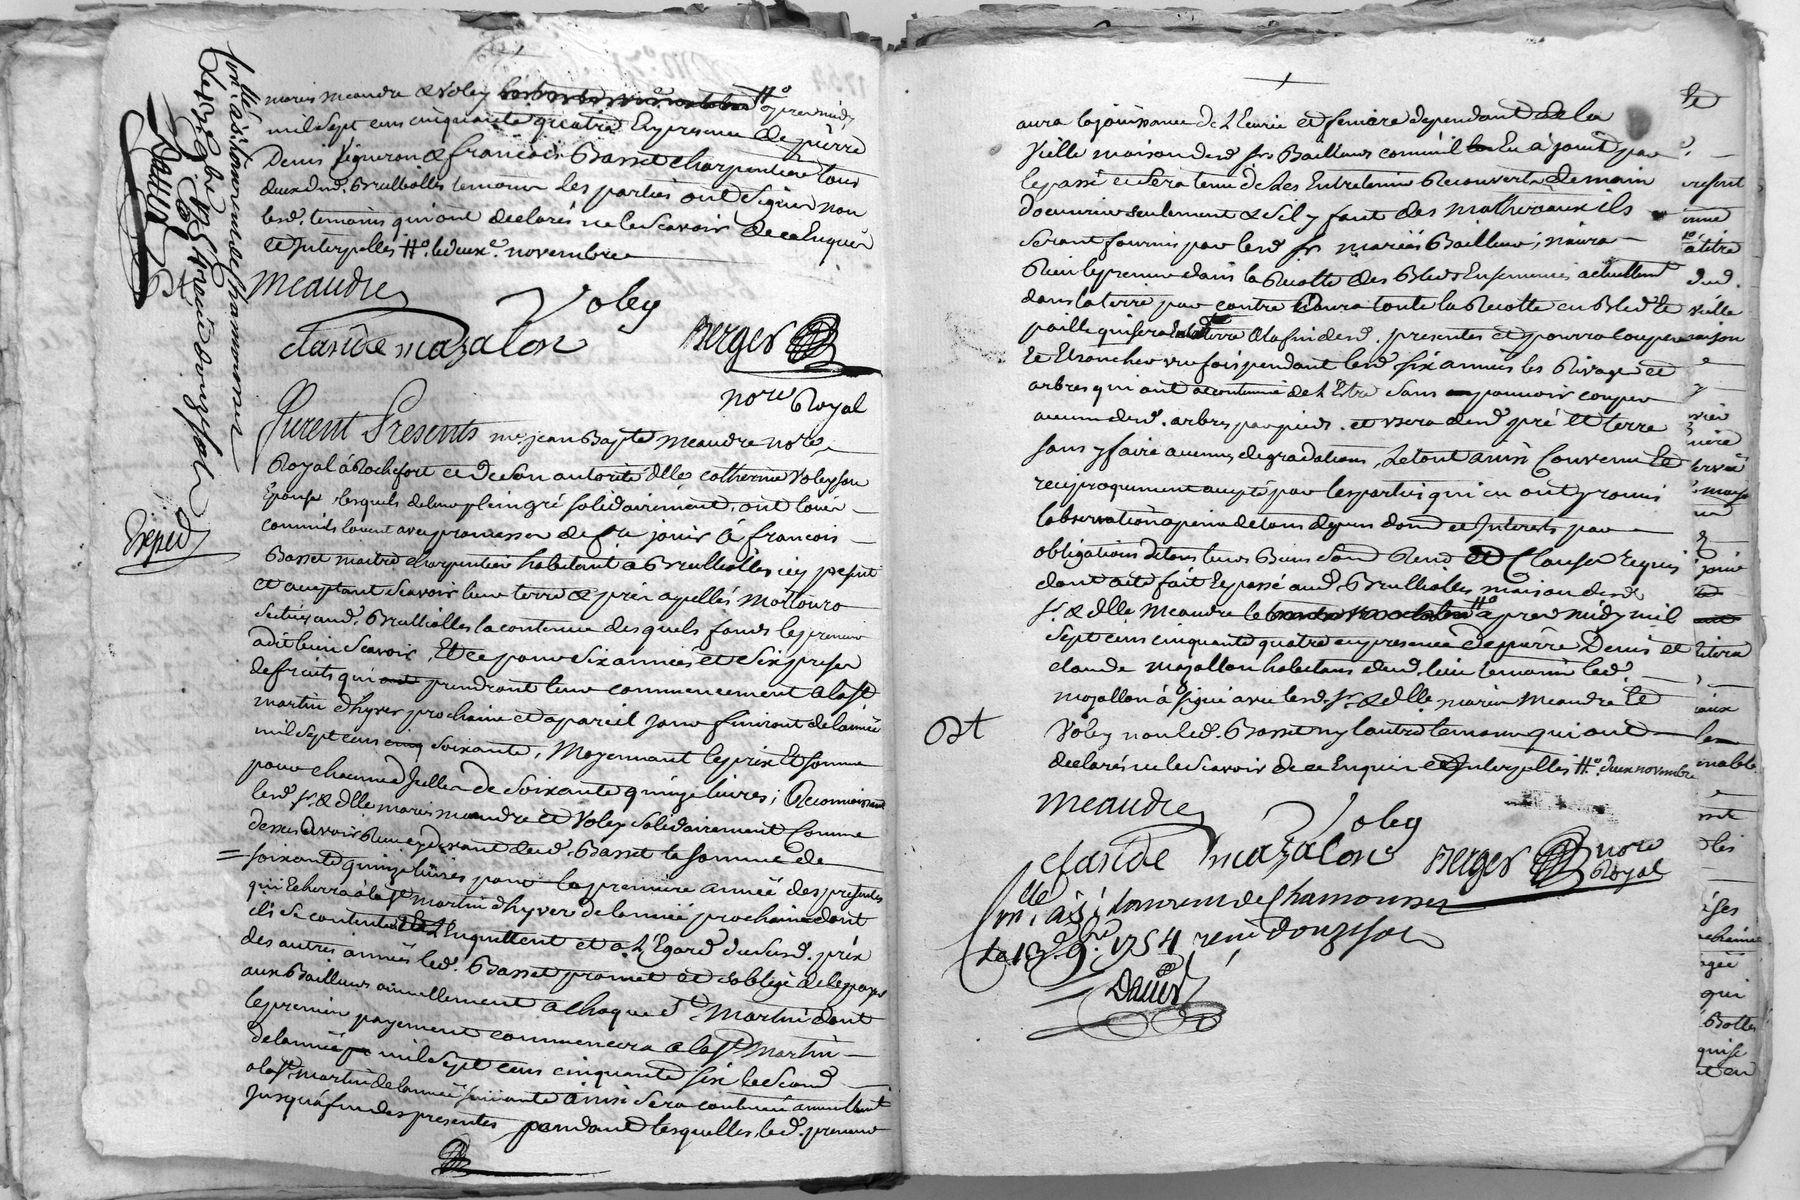 maries meandre & Voley H.° apres midy
mil Sept cens cinquante quatre En presence de pierre
Denis vigneron & francois Basset charpentier tous
deux dud. Brulliolles temoins les parties ont Signé non
lesd. temoins qui ont declarés ne le Scavoir de ce Enquis
et Interpellés H.° le deux.e novembre
meaudre
Voley
claude mazalon
Berger
nore Royal
Furent Presents me. jean Bapte meandre nore
Royal à Rochefort et de Son autorité dlle catherine Voley son
Epouse lesquels de leur plein gré solidairement, ont loué
comme ils louent avec promesse de fre jouir à francois
Basset maitre charpentier habitant à Brulliolles icy present
et acceptant Scavoir leur terre & prés apellés
Scitués aud. Brulliolles la contenue desquels fonds le preneur
a dit bien Scavoir, Et ce pour Six années et Six prises
de fruits qui prendront leur commencement a la St
martin d'hyver prochaine et a pareil jour finiront de l'année
mil Sept cens Soixante, Moyennant le prix Et Somme
pour chacune d'Icelles de Soixante quinze livres; Reconnoissant
lesd. sr. & dlle maries meandre et Voley Solidairement Comme
dessus avoir Reçu cy devant dud. Basset la somme de
= soixante quinze livres pour la premiere année des presentes
qui Echerra à la St martin d'hyver de l'année prochaine dont
ils Se contentent & L'En quittent et a L'Egard du Susd. prix
des autres années led. Basset promet et s'oblige de le payer
aux Bailleurs annuellement a chaque St. Martin dont
le premier payement commencera a la St Martin
de l'année mil Sept cens cinquante Six le Second
a la St martin de l'année Suivante ainsi Sera continué annuellemt
Jusqu'a fin des presentes pendant lesquelles led. preneur
Exped
aura la jouissance de L'Ecurie et feniere dependant de la
Vielle maison desd. srs Bailleurs comme il En a jouit par
le passé et Sera tenu de les Entretenir Recouverts de main
d'oeuvre seulement & s'il y faut des mathereaux ils
Seront fournis par lesd. sr mariés Bailleurs; n'aura
Rien le preneur dans la Recolte des Bleds Ensemencés actuellemt
dans la terre par contre il aura toute la Recolte en Bled et
paille qui sera En lad terre a la fin desd. presentes et pourra couper
Et Ebrancher une fois pendant lesd. six années les Rivages et
arbres qui ont accoutumé de L'Etre Sans pouvoir couper
aucun desd. arbres par pieds. et usera desd. pré Et terre
sans y faire aucunes degradations, Le tout ainsi Convenu Et
reciproquement accepté par les parties qui en ont promis
l'observation a peine de tous depens dom.es et Interets par
obligations de tous leurs Biens Soum. Renon. Et Clauses requis
dont acte fait Et passé aud. Brulliolles maison desd.
sr. & dlle. Meandre le H.° apres midy mil
Sept cens cinquante quatre en presence de pierre Denis et
claude mazallon habitans dud. lieu temoins led.
mazallon à signé avec lesd. sr. & dlle maries Meandre Et
Voley non led. Basset ny l'autre temoin qui ont
declarés ne le Scavoir de ce Enquis et Interpellés H.° deux novembre
meaudre
Voley
claude mazalon
Berger
nore
Royal
con.lle a St. Laurent de Chamousset
Le 13e 9bre 1754 reçu douze sols
David